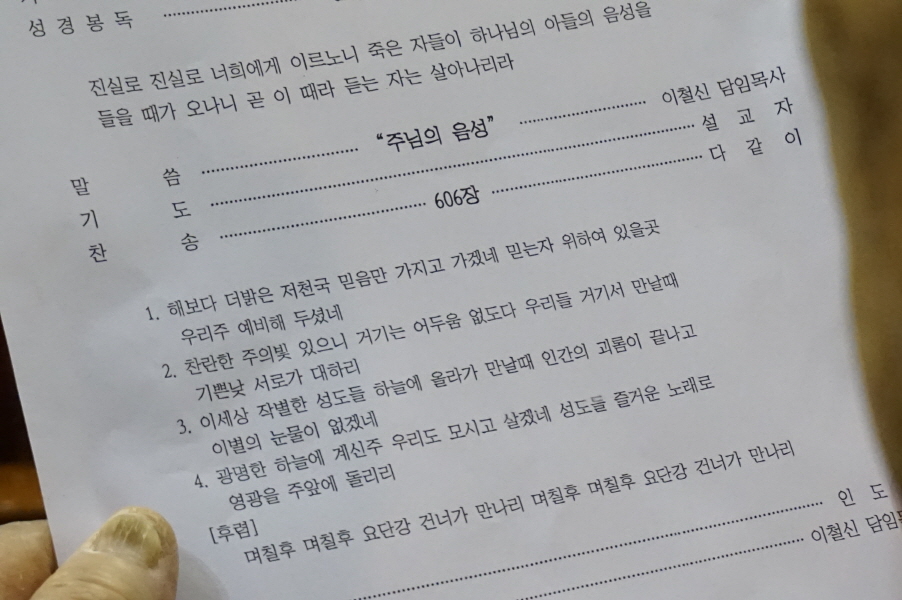 성 경 봉 독
진실로 진실로 너희에게 이르노니 죽은 자들이 하나님의 아들의 음성을
들을 때가 오나니 곧 이 때라 듣는 자는 살아나리라
말 씀 “주님의 음성” 이철신 담임목사
기 도 설 교 자
찬 송 606장 다 같 이
1. 해보다 더밝은 저천국 믿음만 가지고 가겠네 믿는자 위하여 있을곳
우리주 예비해 두셨네
2. 찬란한 주의빛 있으니 거기는 어두움 없도다 우리들 거기서 만날때
기쁜낯 서로가 대하리
3. 이세상 작별한 성도들 하늘에 올라가 만날때 인간의 괴롬이 끝나고
이별의 눈물이 없겠네
4. 광명한 하늘에 계신주 우리도 모시고 살겠네 성도들 즐거운 노래로
영광을 주앞에 돌리리
[후렴]
며칠후 며칠후 요단강 건너가 만나리 며칠후 며칠후 요단강 건너가 만나리
인 도
이철신 담임